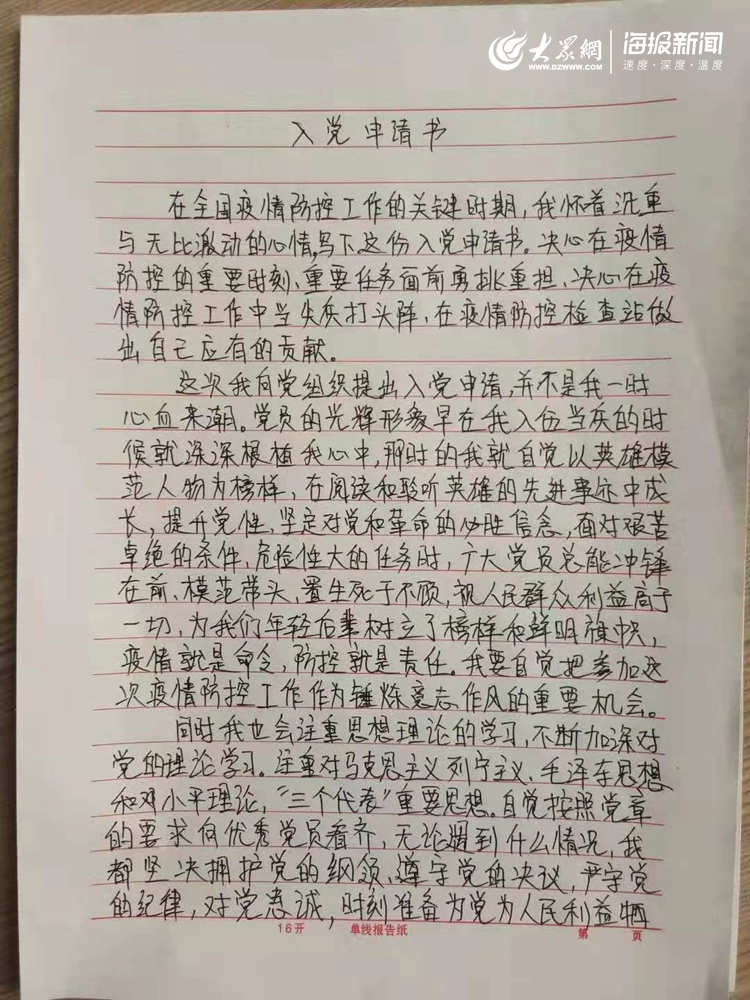 大众網 海报新闻
www.dzwww.com 速度·深度·温度
入党申请书
在全国疫情防控工作的关键时期，我怀着沉重
与无比激动的心情，写下这份入党申请书。决心在疫情
防控的重要时刻、重要任务面前勇挑重担、决心在疫
情防控工作中当尖兵打头阵，在疫情防控检查站做
出自己应有的贡献。
这次我向党组织提出入党申请，并不是我一时
心血来潮。党员的光辉形象早在我入伍当兵的时
候就深深根植我心中，那时的我就自觉以英雄模
范人物为榜样，在阅读和聆听英雄的先进事迹中成
长，提升党性，坚定对党和革命的必胜信念，面对艰苦
卓绝的条件、危险性大的任务时，广大党员总能冲锋
在前、模范带头，置生死于不顾，视人民群众利益高于
一切，为我们年轻后辈树立了榜样和鲜明旗帜，
疫情就是命令，防控就是责任。我要自觉把参加这
次疫情防控工作作为锤炼意志作风的重要机会。
同时我也会注重思想理论的学习，不断加深对
党的理论学习。注重对马克思主义列宁主义、毛泽东思想
和邓小平理论，“三个代表”重要思想。自觉按照党章
的要求向优秀党员看齐，无论遇到什么情况，我
都坚决拥护党的纲领、遵守党的决议，严守党
的纪律，对党忠诚，时刻准备为党为人民利益牺
16开 单线报告纸 第 页